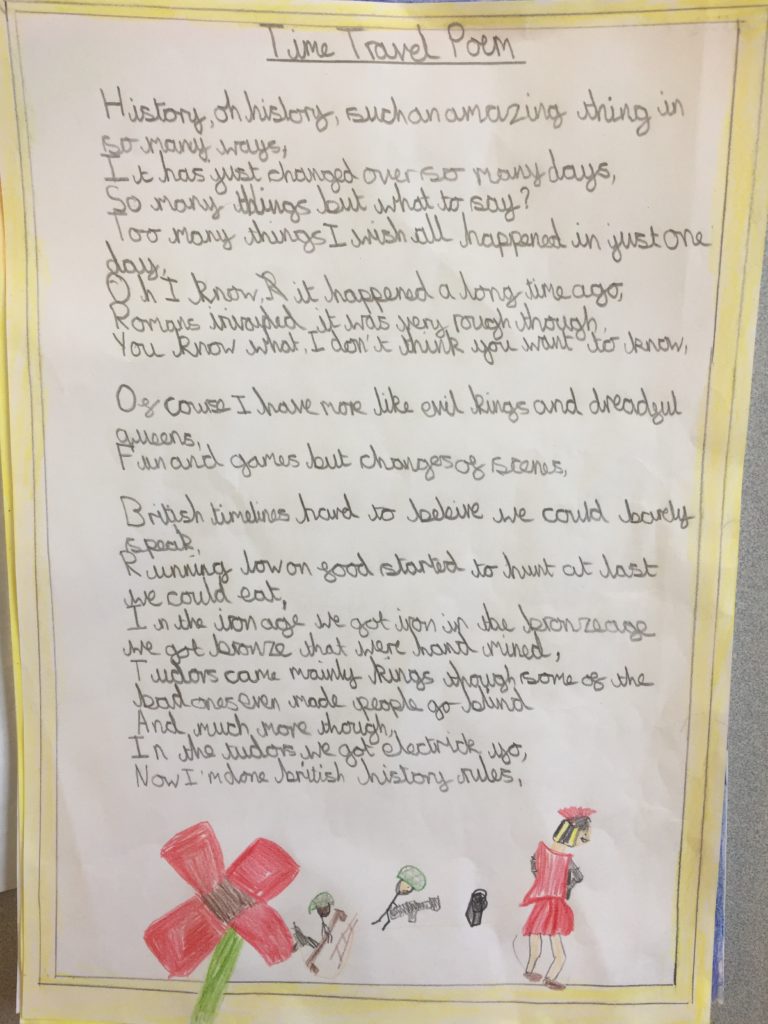 Time Travel Poem
History, oh history, such an amazing thing in
so many ways,
It has just changed over so many days,
So many things but what to say?
Too many things I wish all happened in just one
day,
Oh I know, it happened a long time ago,
Romans invaided it was very rough though,
You know what, I don't think you want to know,
Of couse I have more like evil kings and dreadful
queens,
Fun and games but changes of scenes,
British timelines hard to beleive we could barely
speak,
Running low on food started to hunt at last
we could eat,
In the iron age we got iron in the bronze age
we got bronze that were hand mined,
Tudors came mainly kings though some of the
bad ones even made people go blind
And much more though,
In the tudors we got electrick yo,
Now I'm done british history rules,